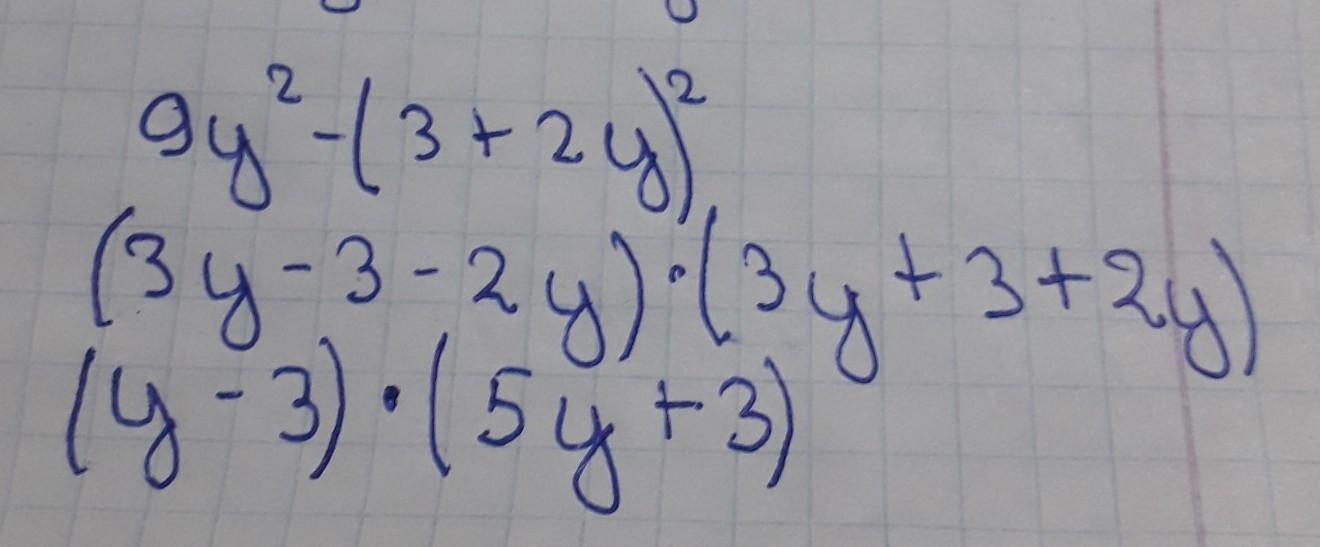 9y² - (3 + 2y)²
(3y - 3 - 2y) · (3y + 3 + 2y)
(y - 3) · (5y + 3)